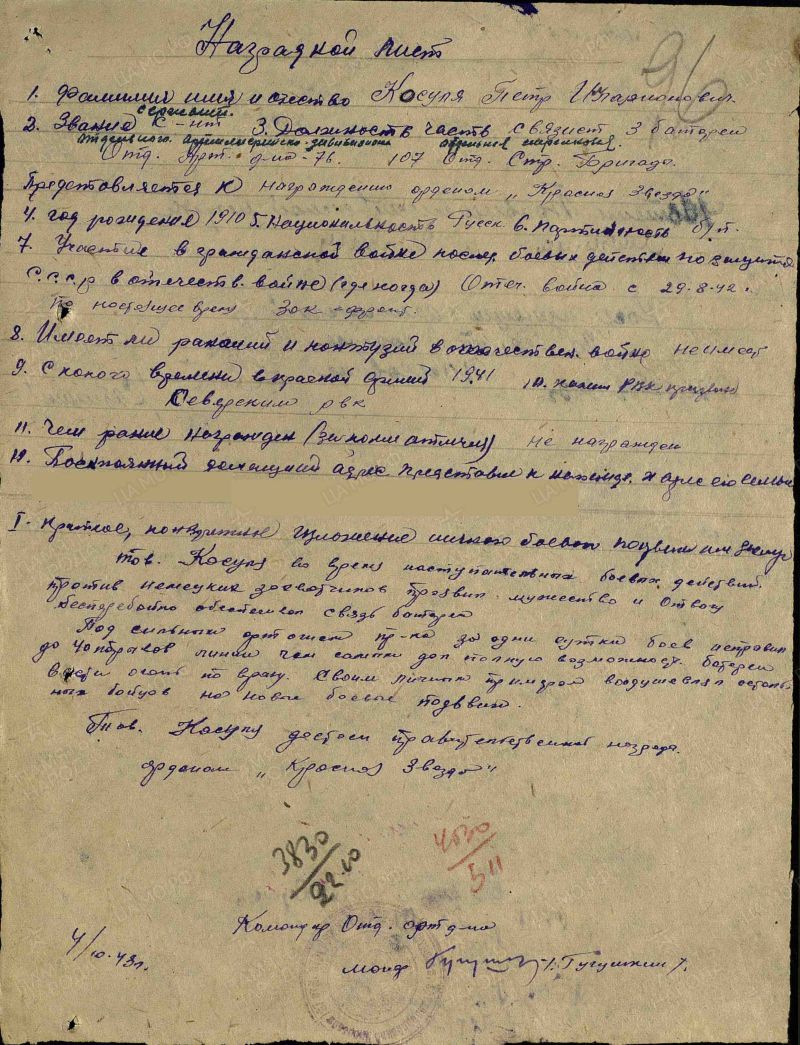 Наградной лист
96
1. Фамилия имя и отество Косуля Петр Иларионович.
сержант.
2. Звание С-нт 3. Должность часть связист 3 батареи
отдельного артиллерийско дивизиона отдельная стрелковая
Отд. Арт. д-на-76. 107 Отд. Стр. Бригада.
Представляется к награждению орденом „Красная Звезда"
4. год рождения 1910 5. Национальность Русск. 6. Партийность б/п.
7. Участие в гражданской войне послед. боевых действиях по защите
С.С.С.Р в отечеств. войне (где когда) Отеч. война с 29.8.42 г.
По настоящее время Зак-фронт.
8. Имеет ли ранений и контузий в отечествен. войне не имеет
9. С какого времени в красной Армии 1941 10. каким РВК призван
Северским рвк
11. Чем ранее награжден (за какие отличия) не награжден
12. Постоянный домашний адрес представл к награде. и адрес его семьи
I. Краткое, конкретное изложение личного боевого подвига или заслуг
тов. Косуля во время наступательных боевых действий
против немецких захватчиков проявил мужество и отвагу
Бесперебойно обеспечивал связь батареи
Под сильным арт огнем пр-ка за одни сутки боев исправил
до 40 порывов линии чем самым дал полную возможность батареи
вести огонь по врагу. Своим личным примером воодушевлял осталь-
ных бойцов на новые боевые подвиги.
Тов. Косуля достоен правительственной награды
орденом „Красная Звезда"
3830
22.10
4030
5 11
Командир Отд. арт д-на
4/10-43г. майор /Гугушкин/.